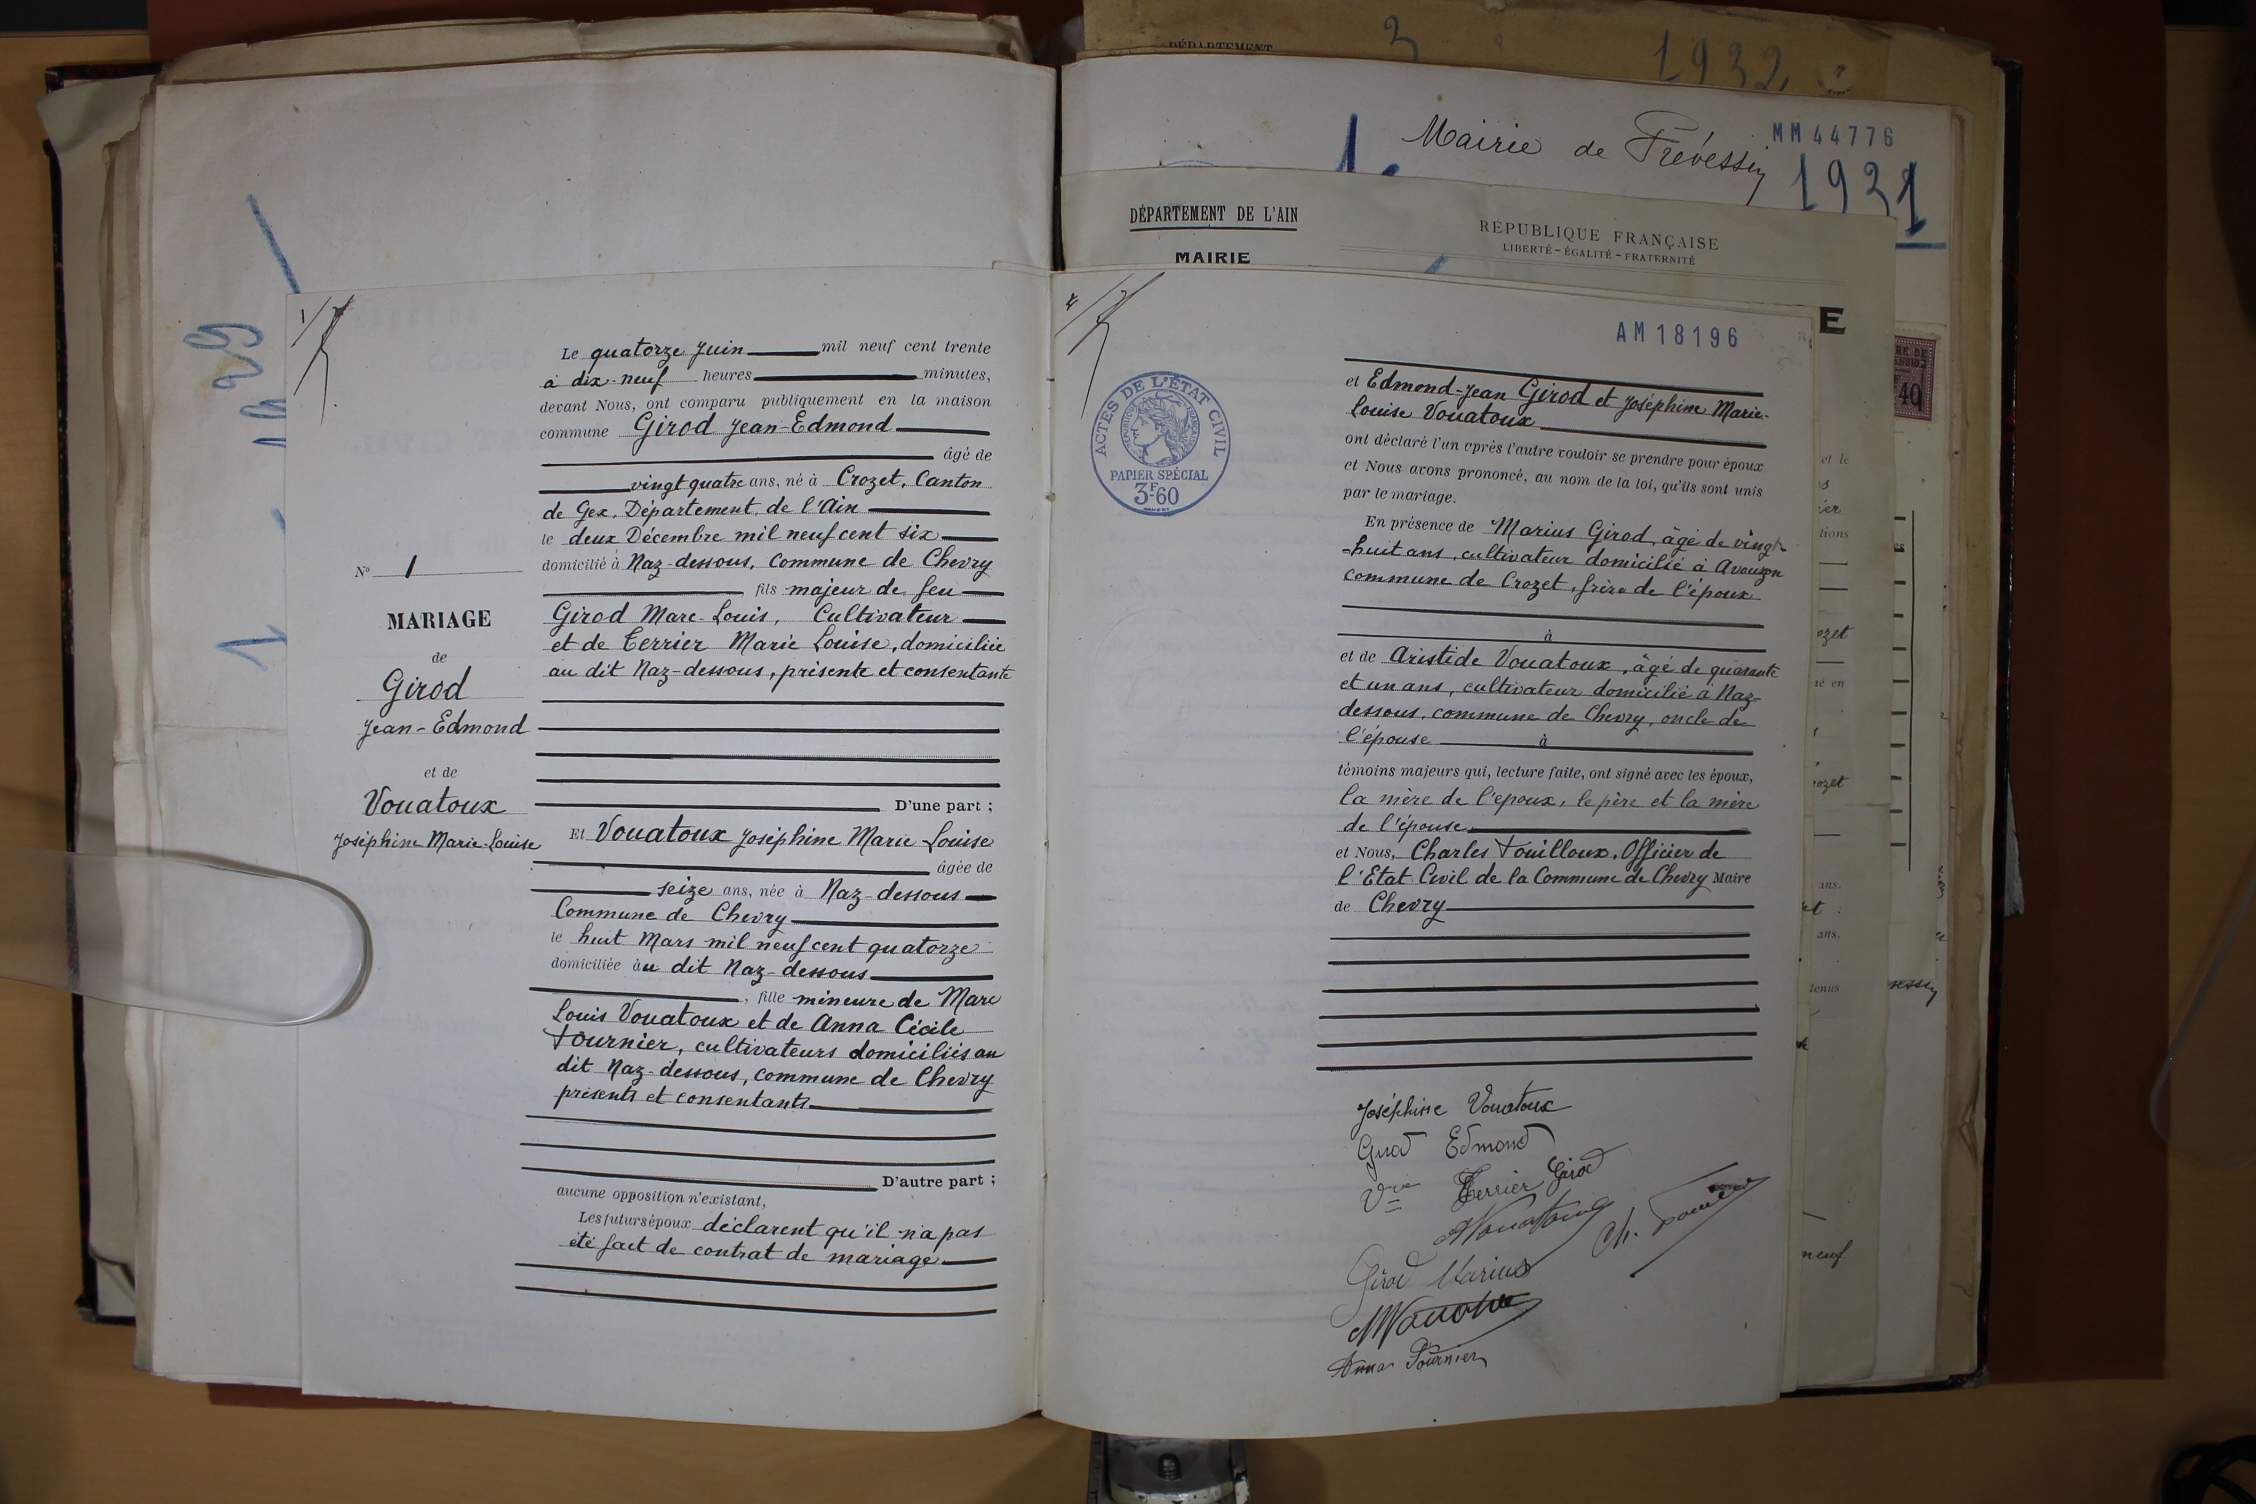 1929
1
1
Le quatorze Juin mil neuf cent trente
à dix-neuf heures minutes,
devant Nous, ont comparu publiquement en la maison
commune Girod Jean-Edmond
âgé de
vingt quatre ans, né à Crozet, Canton
de Gex, Département de l'Ain
le deux Décembre mil neuf cent six
domicilié à Naz-dessous, Commune de Chevry
fils majeur de feu
Girod Marc-Louis, Cultivateur
et de Terrier Marie Louise, domiciliée
au dit Naz-dessous, présente et consentante
D'une part ;
Et Vouatoux Joséphine Marie Louise
âgée de
seize ans, née à Naz-dessous
Commune de Chevry
le huit Mars mil neuf cent quatorze
domiciliée au dit Naz-dessous
, fille mineure de Marc
Louis Vouatoux et de Anna Cécile
Fournier, cultivateurs domiciliés au
dit Naz-dessous, commune de Chevry
présents et consentants
D'autre part ;
aucune opposition n'existant,
Les futurs époux déclarent qu'il n'a pas
été fait de contrat de mariage
No 1
MARIAGE
de
Girod
Jean-Edmond
et de
Vouatoux
Joséphine Marie-Louise
DÉPARTEMENT
3
1932
Mairie de Prévessin
MM 44776
1931
DÉPARTEMENT DE L'AIN
MAIRIE
RÉPUBLIQUE FRANÇAISE
LIBERTÉ - ÉGALITÉ - FRATERNITÉ
E
AM 18196
ACTES DE L'ÉTAT CIVIL
RÉPUBLIQUE FRANÇAISE
PAPIER SPÉCIAL
3F.60
et Edmond-Jean Girod et Joséphine Marie-
Louise Vouatoux
ont déclaré l'un après l'autre vouloir se prendre pour époux
et Nous avons prononcé, au nom de la loi, qu'ils sont unis
par le mariage.
En présence de Marius Girod, âgé de vingt-
-huit ans, cultivateur domicilié à Avouzon
commune de Crozet, frère de l'époux
à
et de Aristide Vouatoux, âgé de quarante
et un ans, cultivateur domicilié à Naz-
dessous, commune de Chevry, oncle de
l'épouse à
témoins majeurs qui, lecture faite, ont signé avec les époux,
la mère de l'époux, le père et la mère
de l'épouse
et Nous, Charles Fouilloux, Officier de
l'Etat-Civil de la Commune de Chevry Maire
de Chevry
Joséphine Vouatoux
Girod Edmond
Vve Terrier Girod
AVouatoux
Ch. Fouilloux
Girod Marius
MVouatoux
Anna Fournier
40
et le
tions
ozet
ozet
ans.
ans.
tenus
neuf